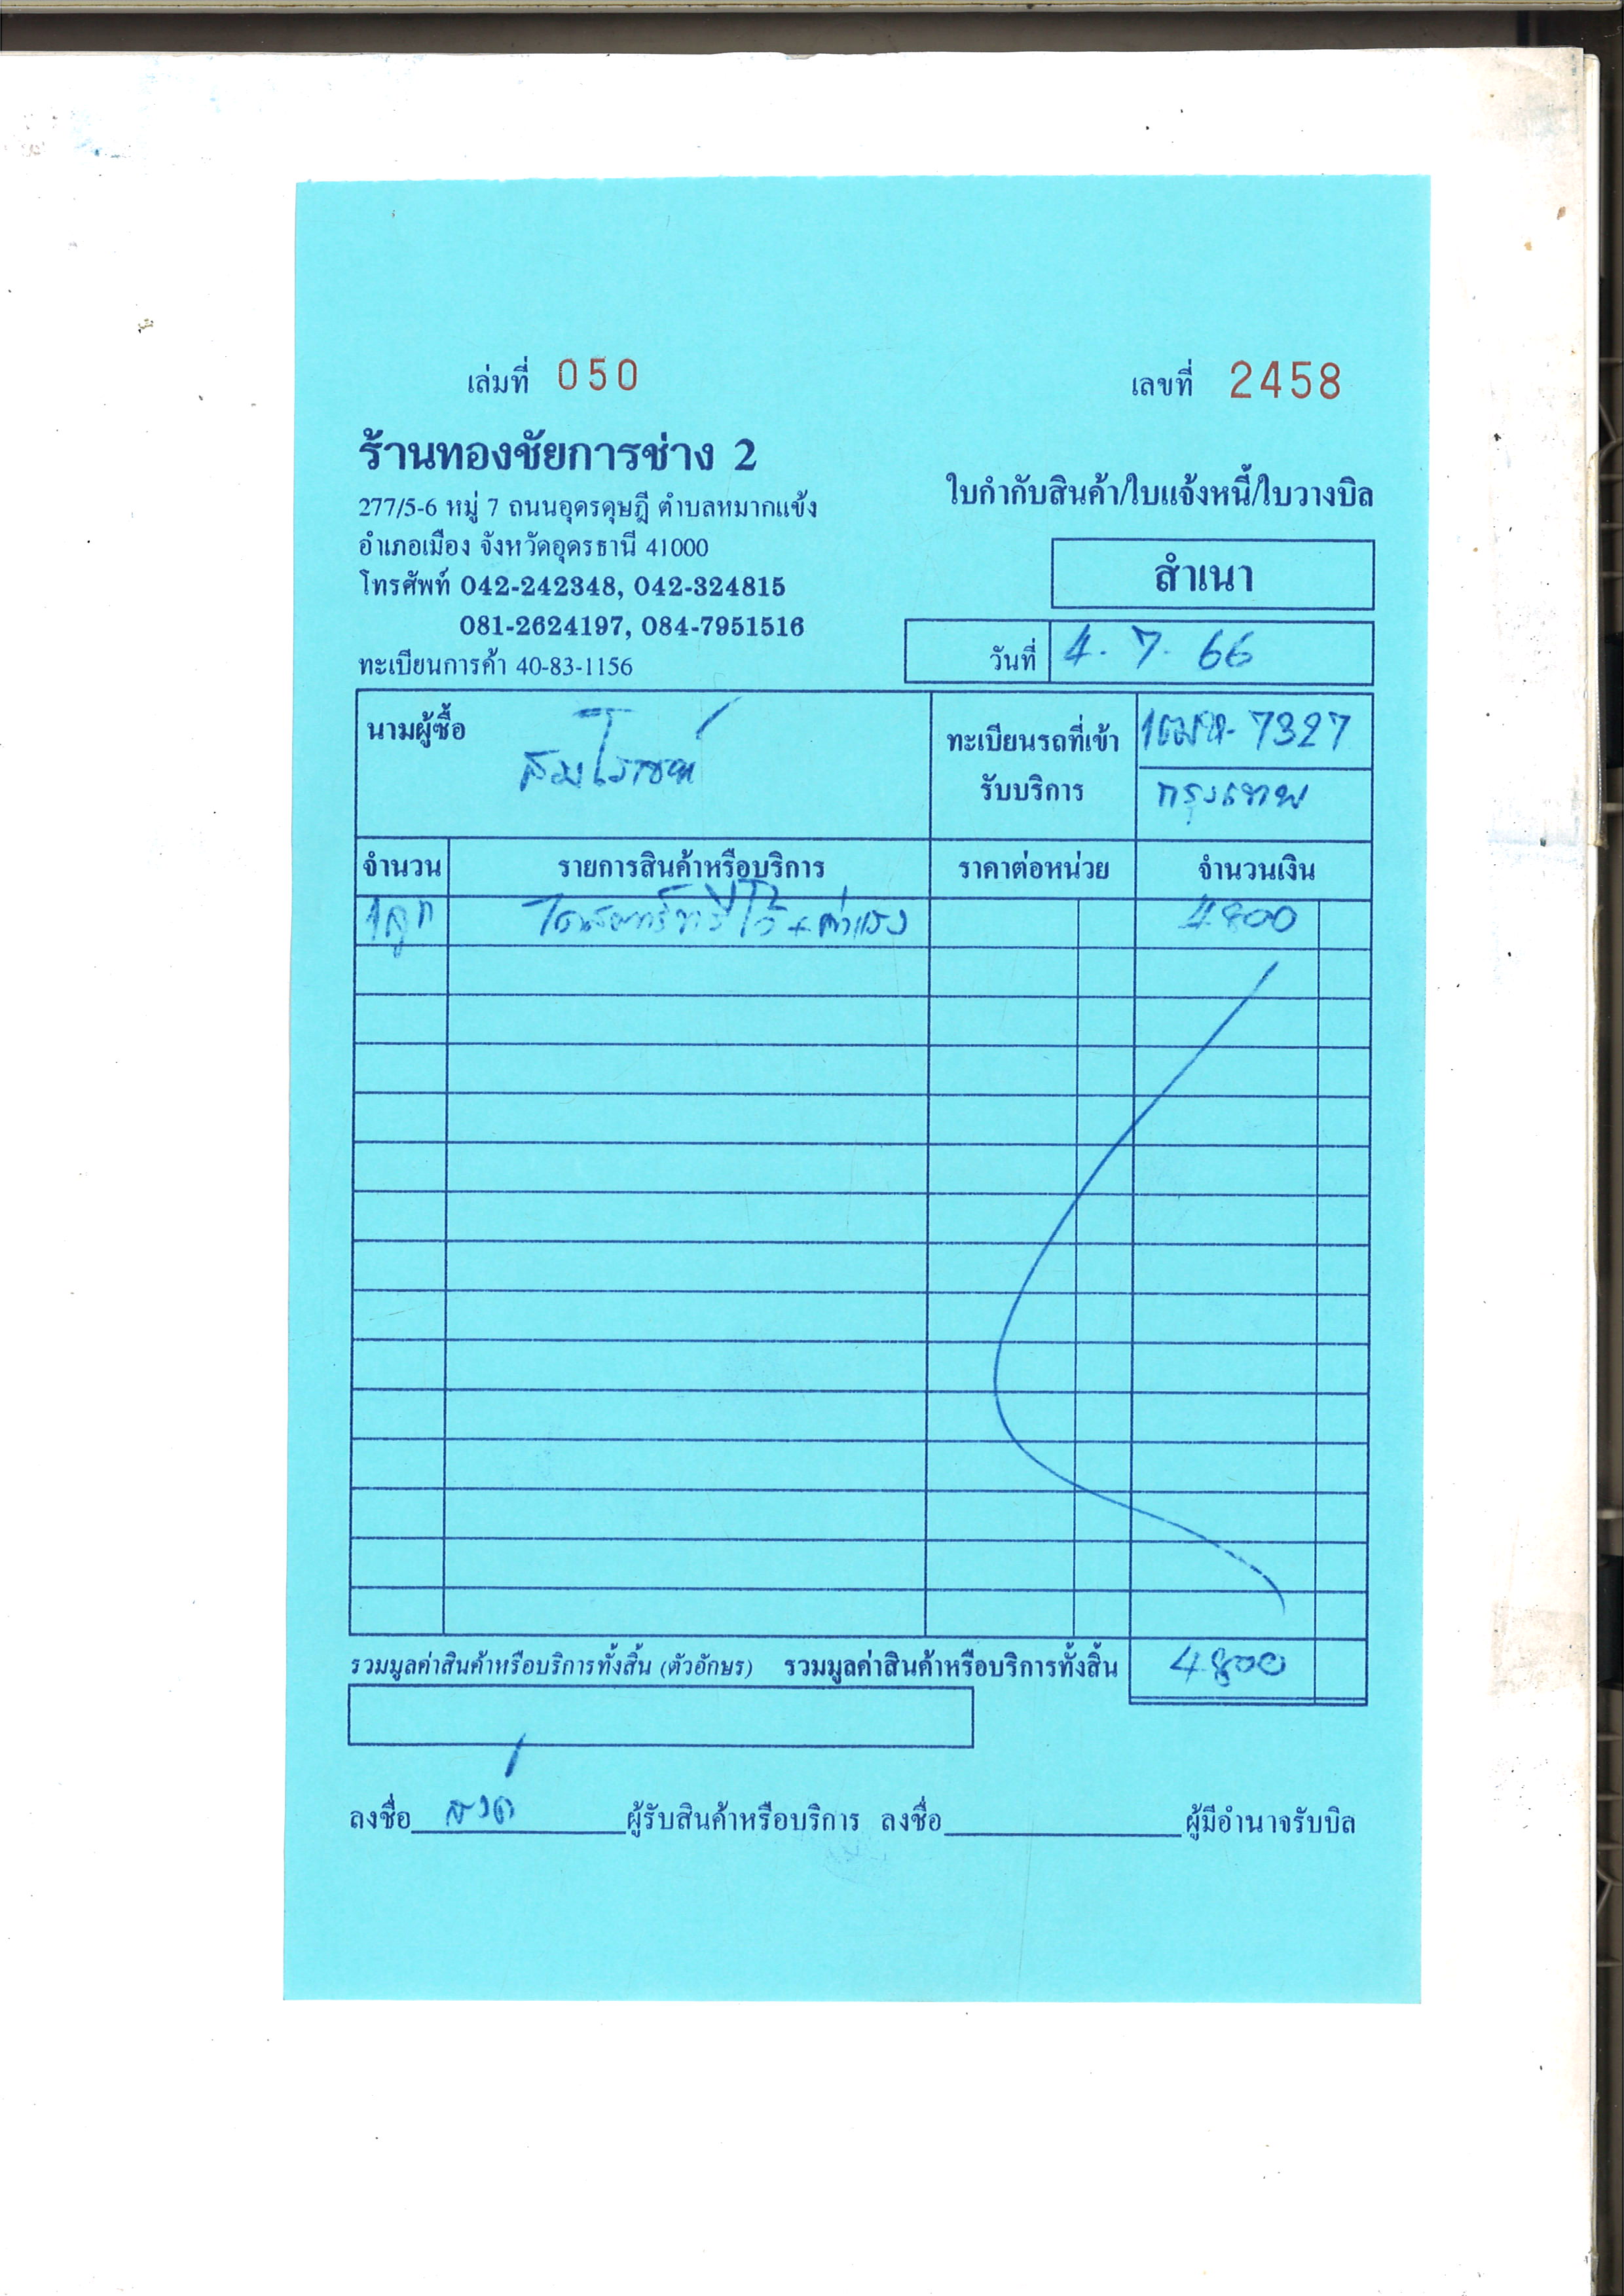 เล่มที่ 050 เลขที่ 2458
ร้านทองชัยการช่าง 2
277/5-6 หมู่ 7 ถนนอุดรดุษฎี ตำบลหมากแข้ง
ใบกำกับสินค้า/ใบแจ้งหนี้/ใบวางบิล
อำเภอเมือง จังหวัดอุดรธานี 41000
สำเนา
โทรศัพท์ 042-242348, 042-324815
081-2624197, 084-7951516
วันที่ 4. 7. 66
ทะเบียนการค้า 40-83-1156
นามผู้ซื้อ สมโรจน์
ทะเบียนรถที่เข้ารับบริการ 7327
กรุงเทพ
จำนวน รายการสินค้าหรือบริการ ราคาต่อหน่วย จำนวนเงิน
1ลูก ไดสตาร์ทรีโว้ + ค่าแรง 4800
รวมมูลค่าสินค้าหรือบริการทั้งสิ้น (ตัวอักษร) รวมมูลค่าสินค้าหรือบริการทั้งสิ้น 4800
ลงชื่อ ผู้รับสินค้าหรือบริการ ลงชื่อ ผู้มีอำนาจรับบิล